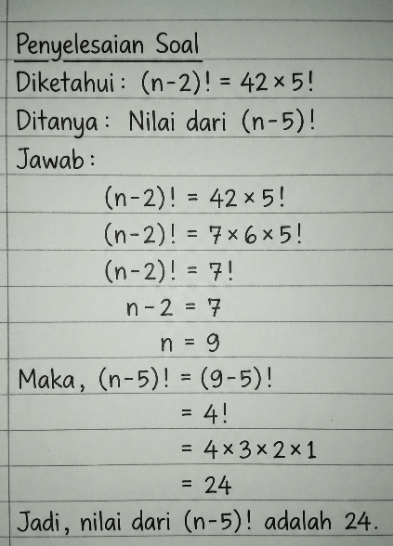 Penyelesaian Soal
Diketahui : (n-2)! = 42 × 5!
Ditanya : Nilai dari (n-5)!
Jawab :
(n-2)! = 42 × 5!
(n-2)! = 7 × 6 × 5!
(n-2)! = 7!
n - 2 = 7
n = 9
Maka, (n-5)! = (9-5)!
= 4!
= 4 × 3 × 2 × 1
= 24
Jadi, nilai dari (n-5)! adalah 24.